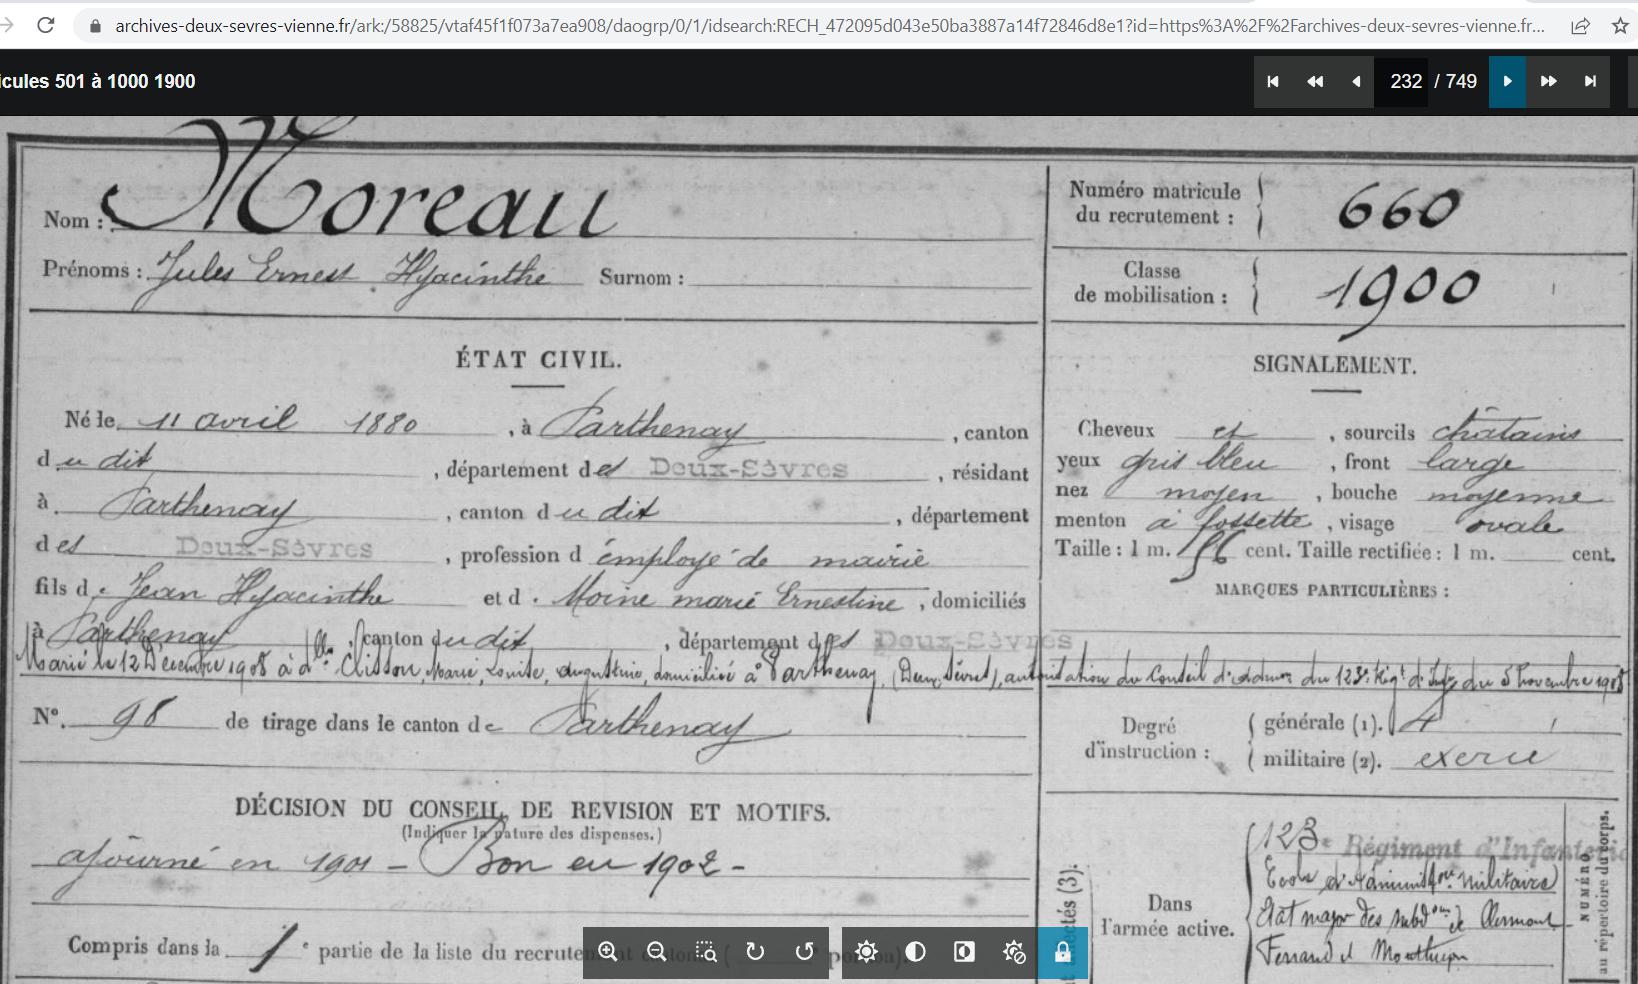 archives-deux-sevres-vienne.fr/ark:/58825/vtaf45f1f073a7ea908/daogrp/0/1/idsearch:RECH_472095d043e50ba3887a14f72846d8e1?id=https%3A%2F%2Farchives-deux-sevres-vienne.fr...
icules 501 à 1000 1900
232 / 749
Nom : Moreau
Prénoms : Jules Ernest Hyacinthe Surnom :
Numéro matricule
du recrutement : 660
Classe
de mobilisation : 1900
ÉTAT CIVIL.
Né le 11 avril 1880, à Parthenay, canton
dudit, département des Deux-Sèvres, résidant
à Parthenay, canton dudit, département
des Deux-Sèvres, profession d'employé de mairie
fils de Jean Hyacinthe et d. Moine marie Ernestine, domiciliés
à Parthenay, canton dudit, département des Deux-Sèvres
Marié le 12 Décembre 1908 à dlle Clisson, Marie, Louise, Augustine, domicilié à Parthenay, (Deux Sèvres), autorisation du Conseil d'Admon du 123e Régt d'Infie du 5 Novembre 1908
N°. 98 de tirage dans le canton de Parthenay
SIGNALEMENT.
Cheveux et, sourcils châtains
yeux gris bleu, front large
nez moyen, bouche moyenne
menton à fossette, visage ovale
Taille : 1 m. 56 cent. Taille rectifiée : 1 m. cent.
MARQUES PARTICULIÈRES :
Degré
d'instruction :
générale (1). 4
militaire (2). exercé
DÉCISION DU CONSEIL DE REVISION ET MOTIFS.
(Indiquer la nature des dispenses.)
ajourné en 1901 - Bon en 1902 -
Compris dans la 1e partie de la liste du recrutem
Dans
l'armée active.
123e Régiment d'Infanterie
Ecole d'Administon militaire
Etat major des subdons de Clermont
Ferrand et Montluçon
NUMÉRO
au répertoire du corps.
ctés (3):